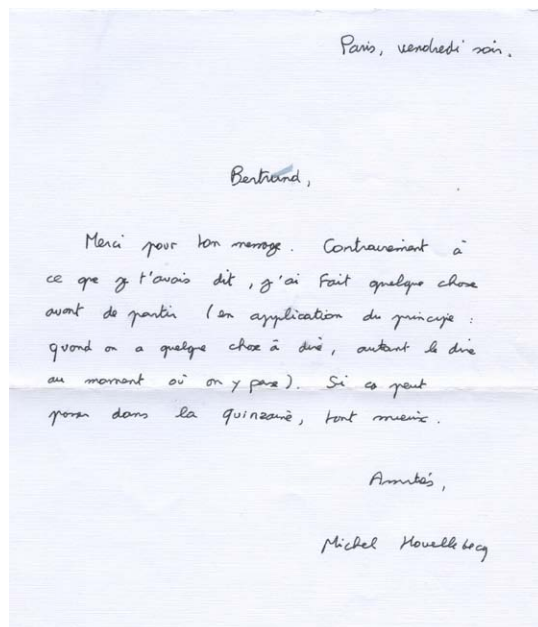 Paris, vendredi soir.
Bertrand,
Merci pour ton message. Contrairement à
ce que je t'avais dit, j'ai fait quelque chose
avant de partir (en application du principe :
quand on a quelque chose à dire, autant le dire
au moment où on y pense). Si ça peut
passer dans la quinzaine, tant mieux.
Amitiés,
Michel Houellebecq